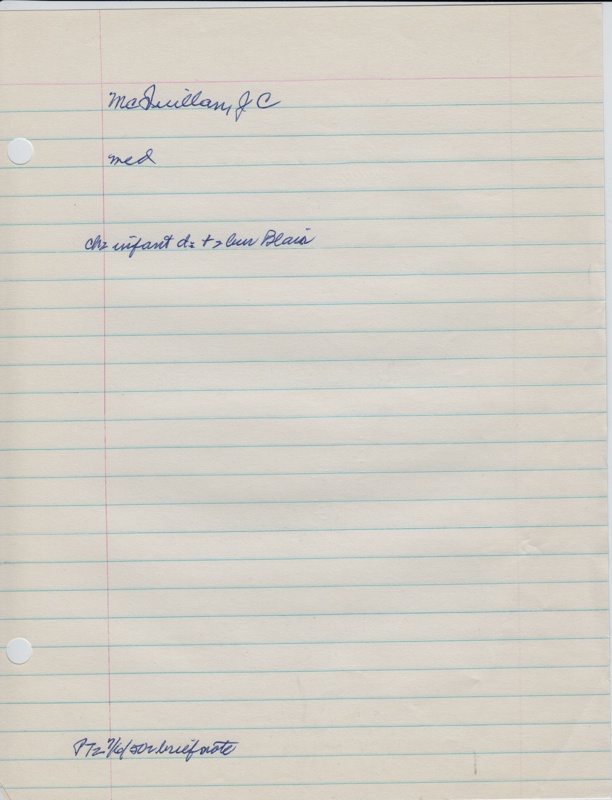 McQuillan, J C
med
ch= infant d= + = bur Blair
brief note